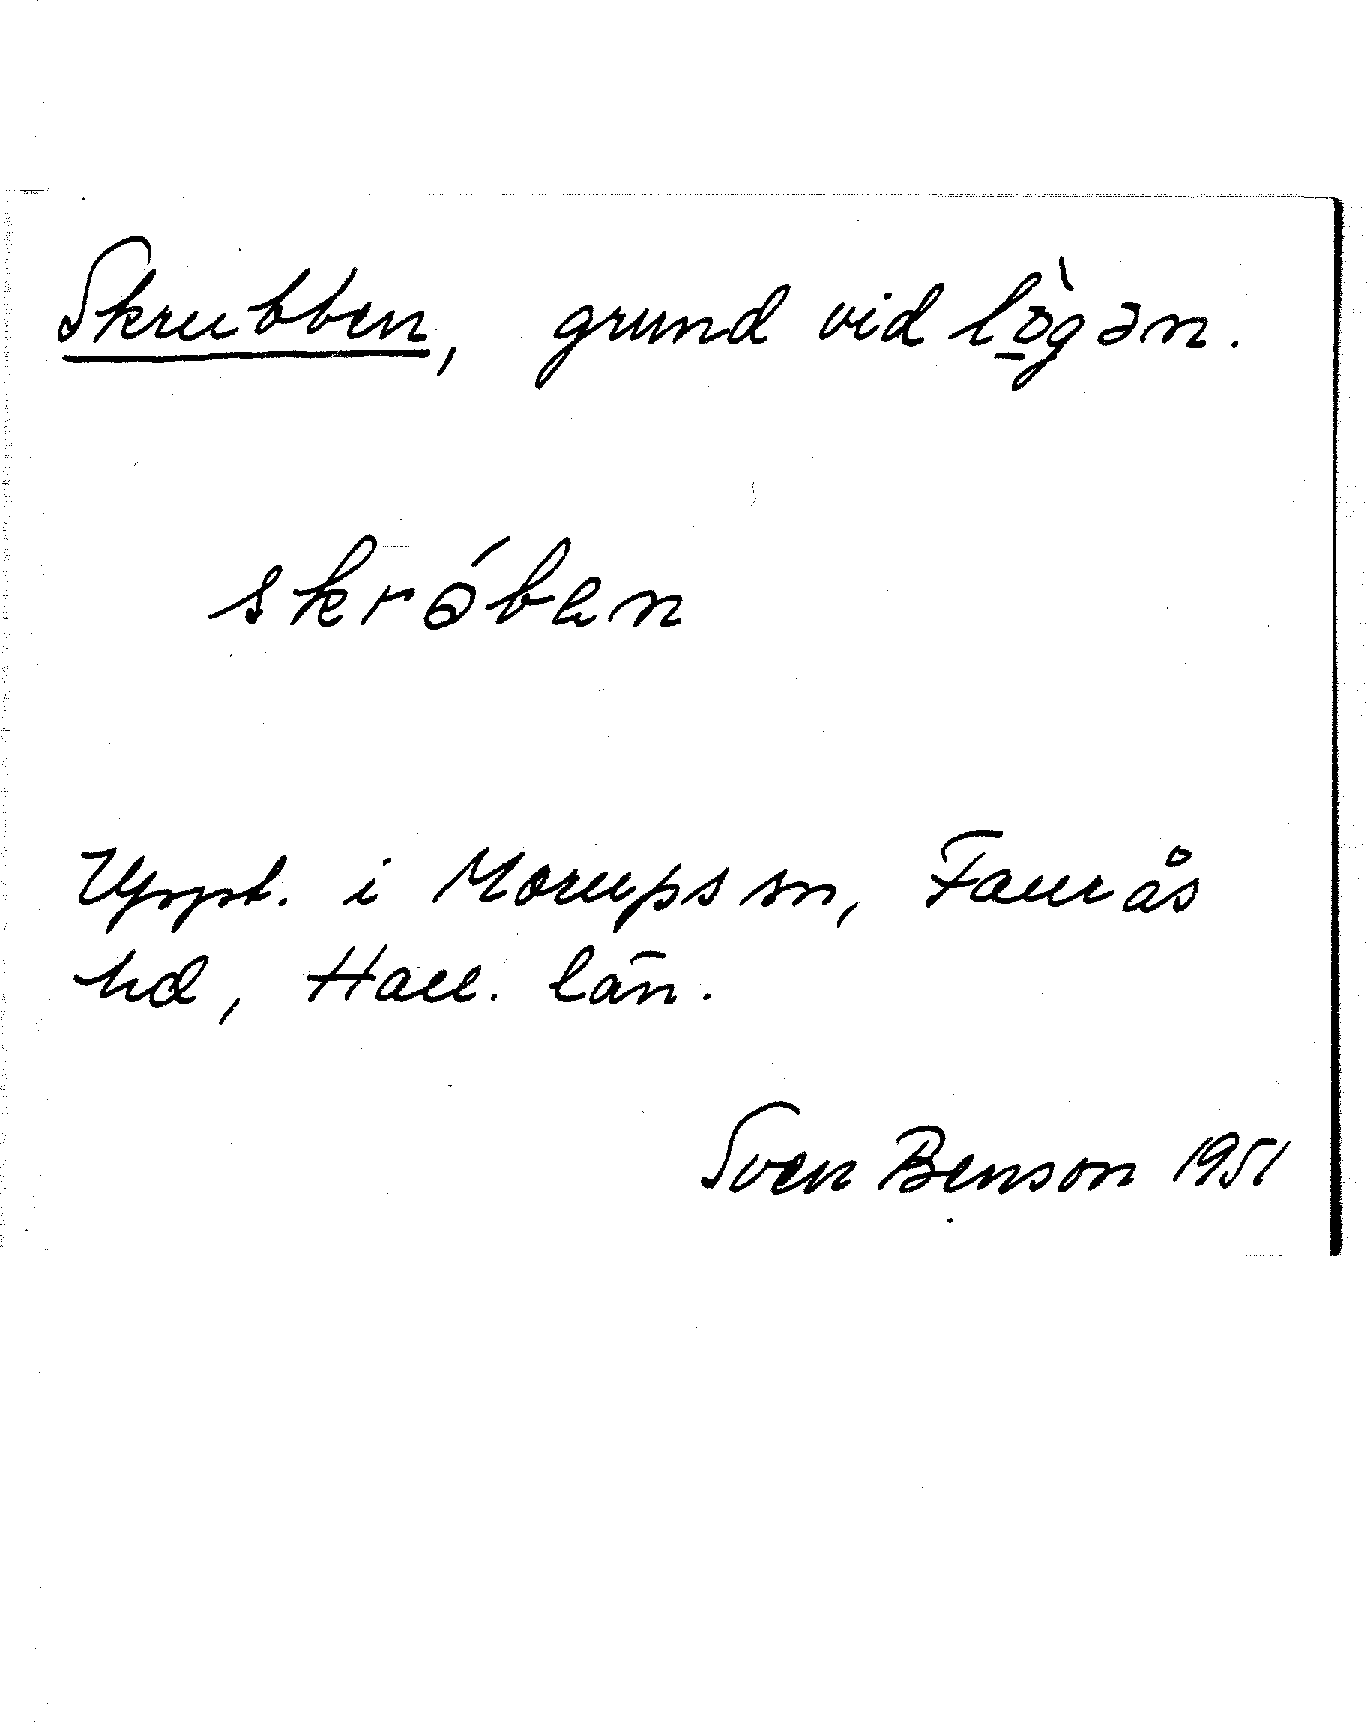 Skrubben, grund vid lò̱gən.
skrǿben
Uppt. i Morups sn, Faurås
hd, Hall. län.
Sven Benson 1951